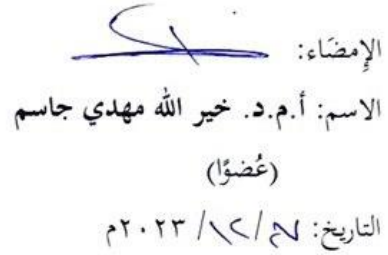 الإِمضَاء:
الاسم: أ.م.د. خير الله مهدي جاسم
(عُضوًا)
التاريخ: / ١٢ / ٢٠٢٣م